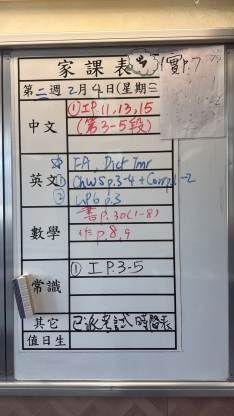 家課表
實P.7
第二週 2月4日(星期三
中文
①工P.11,13,15
(第3-5段)
英文
☆ FA, Dict Tmr
① ChWS p.3-4 + Comp 1-2
② WPG p.3
數學
書 p.30(1-8)
作 p.8,9
常識
① 工 P.3-5
其它
已派考試時間表
值日生